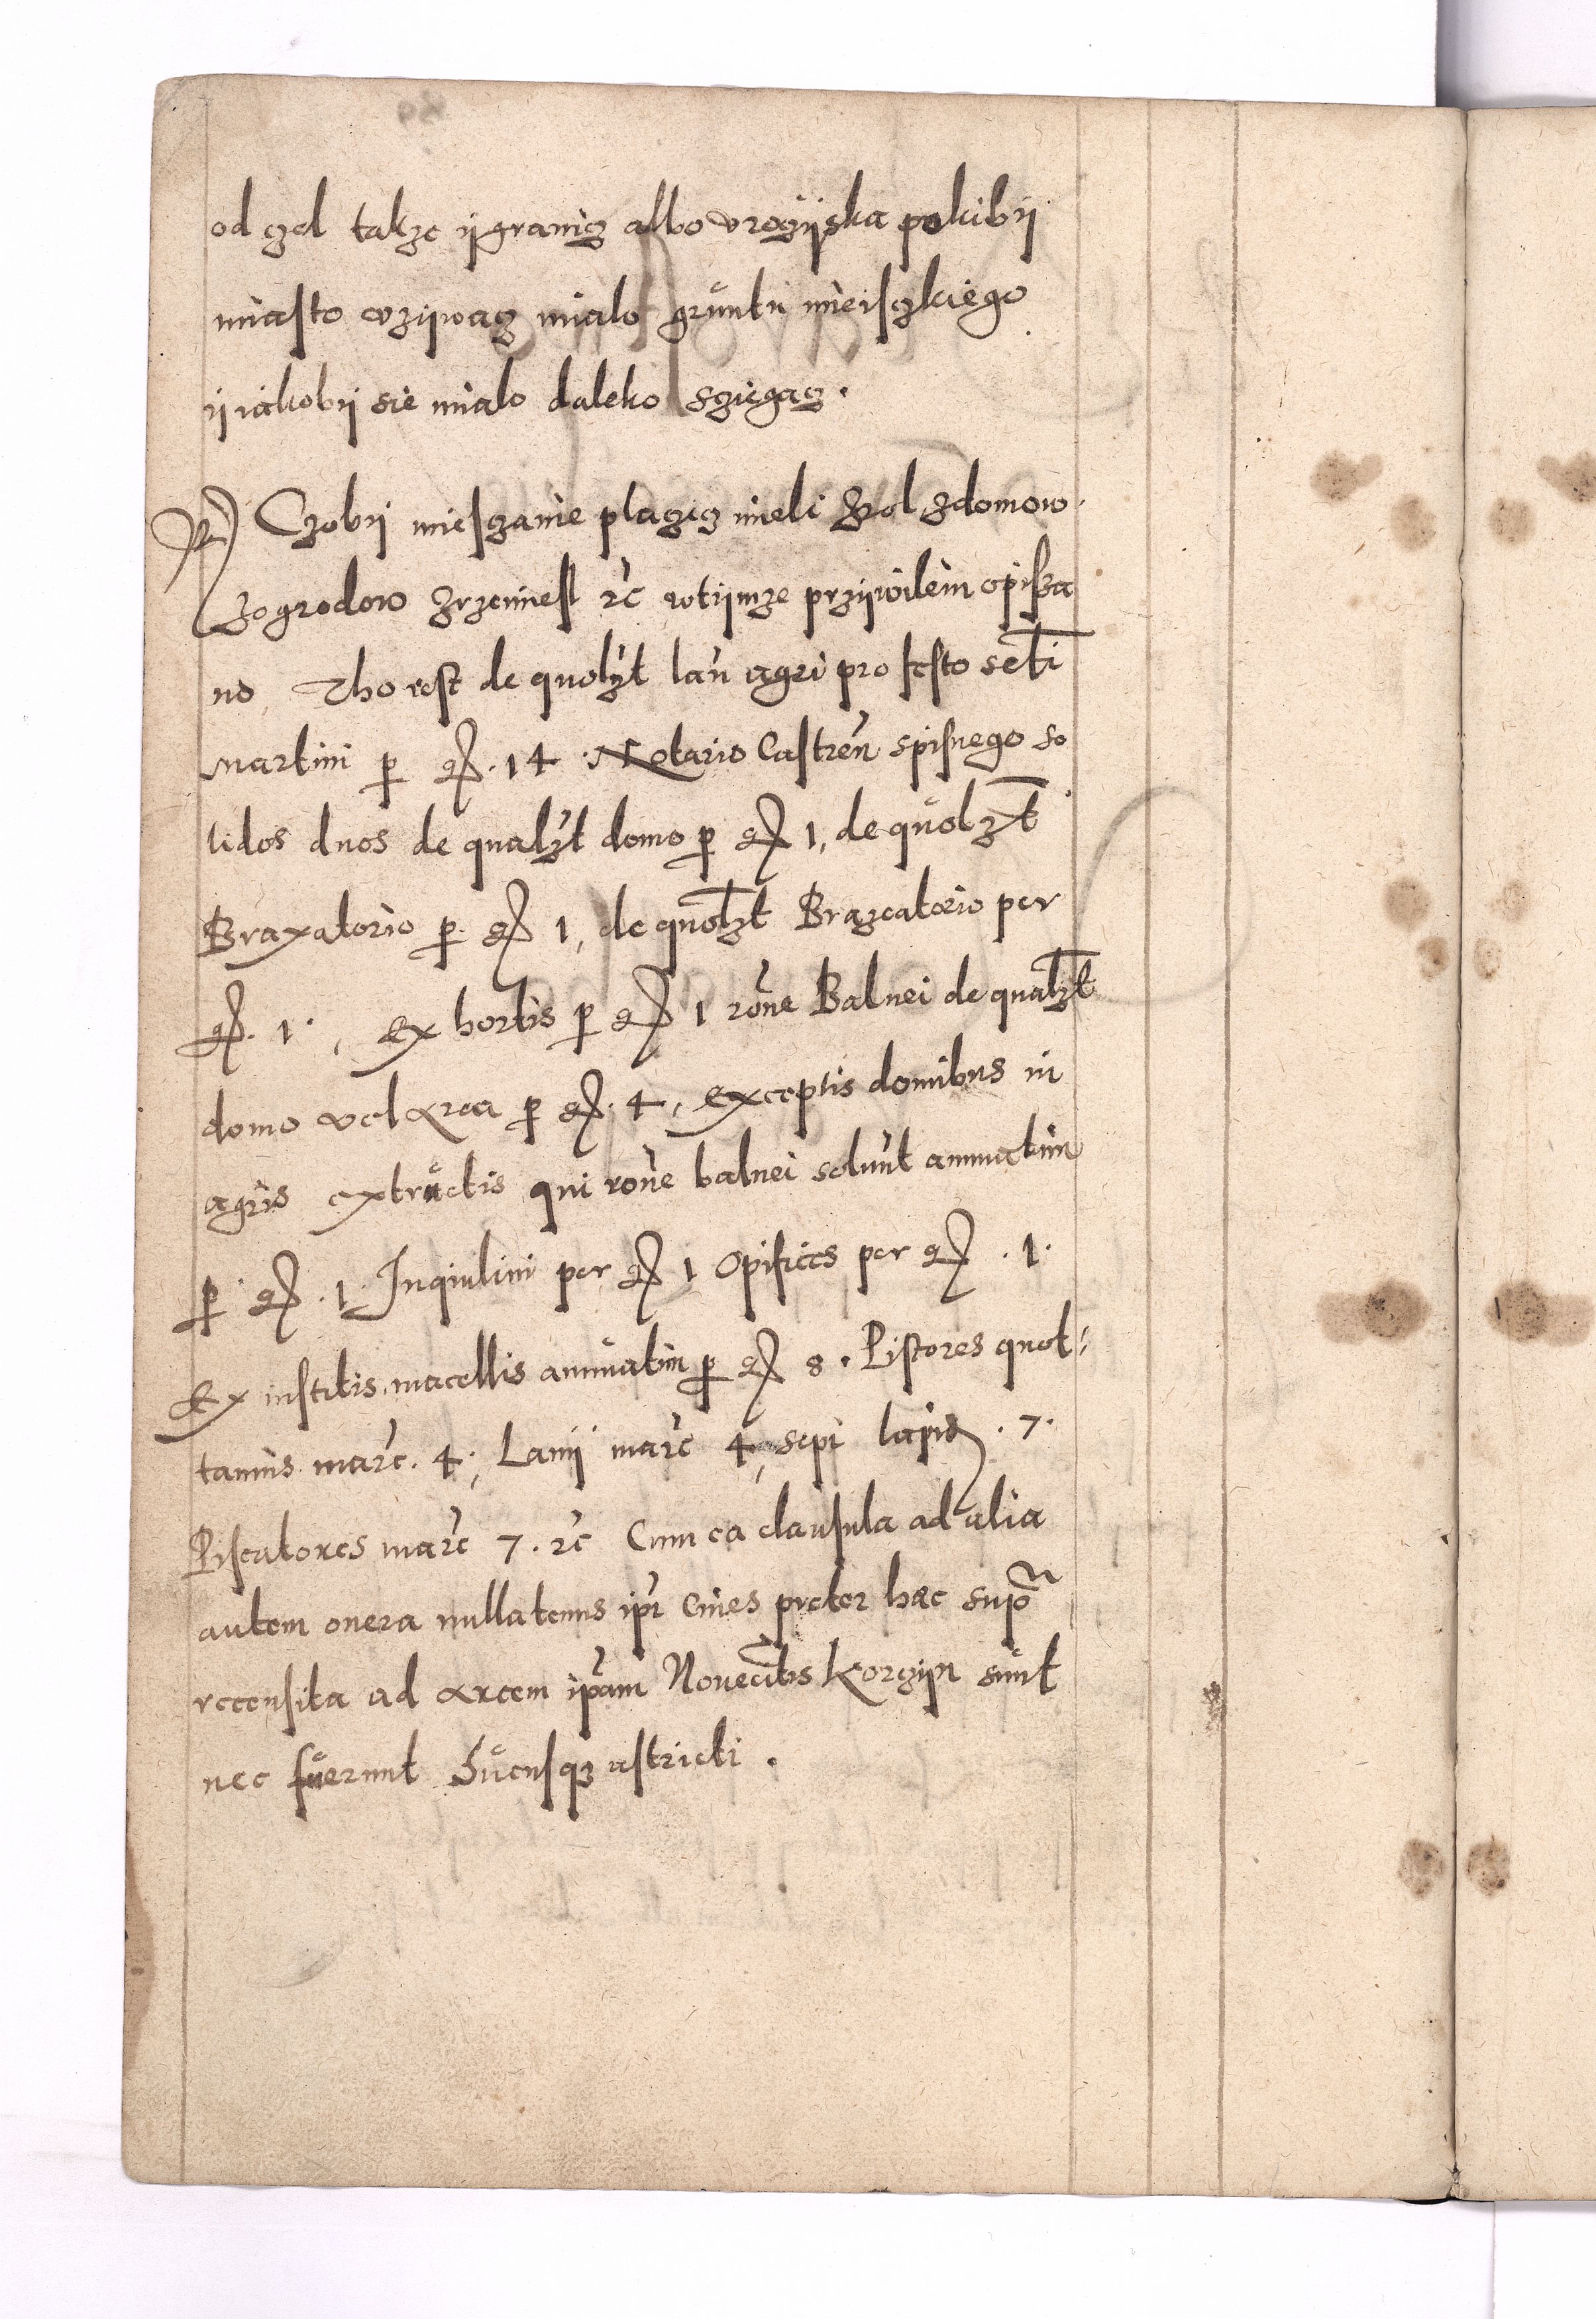 od czel takze ij granicz albo vroczijska pokibij
miasto vzijwacz mialo gruntu mieisczkiego
ij iakobij sie mialo daleko sziegacz.
Czobij miesczanie placzicz mieli Zrol zdomow
zogrodow zrzemiesl etc wtijmze przijwileiu opissa
no, Tho iest de quolzt lan agri pro festo scti
Martini p gr. 14 Notario Castren spisnego so
lidos duos de qualzt domo p gr 1, de quolzt
Braxatorio p. gr 1, de quolzt Brazeatorio per
gr. 1., Ex hortis p gr 1 rone Balnei de qualzt
domo vel Area p gr. 4, Exceptis domibus in
agris extructis qui rone balnei solunt annuatim
p gr. 1. Inquilini per gr 1 Opifices per gr. 1.
Ex institis, macellis annuatim p gr 8. Pistores quot=
tannis marc. 4., Lanij marc 4, sepi lapid. 7.
Piscatores marc 7. etc Cum ea clausula ad alia
autem onera nullatenus ipi Ciues preter haec supra
recensita ad Arcem ipam Nouecitis Korczijn sunt
nec fuerunt hucusqz astricti.